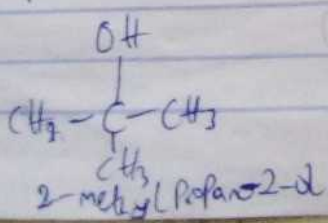 OH
CH₃-C-CH₃
CH₃
2-methyl Propan-2-ol